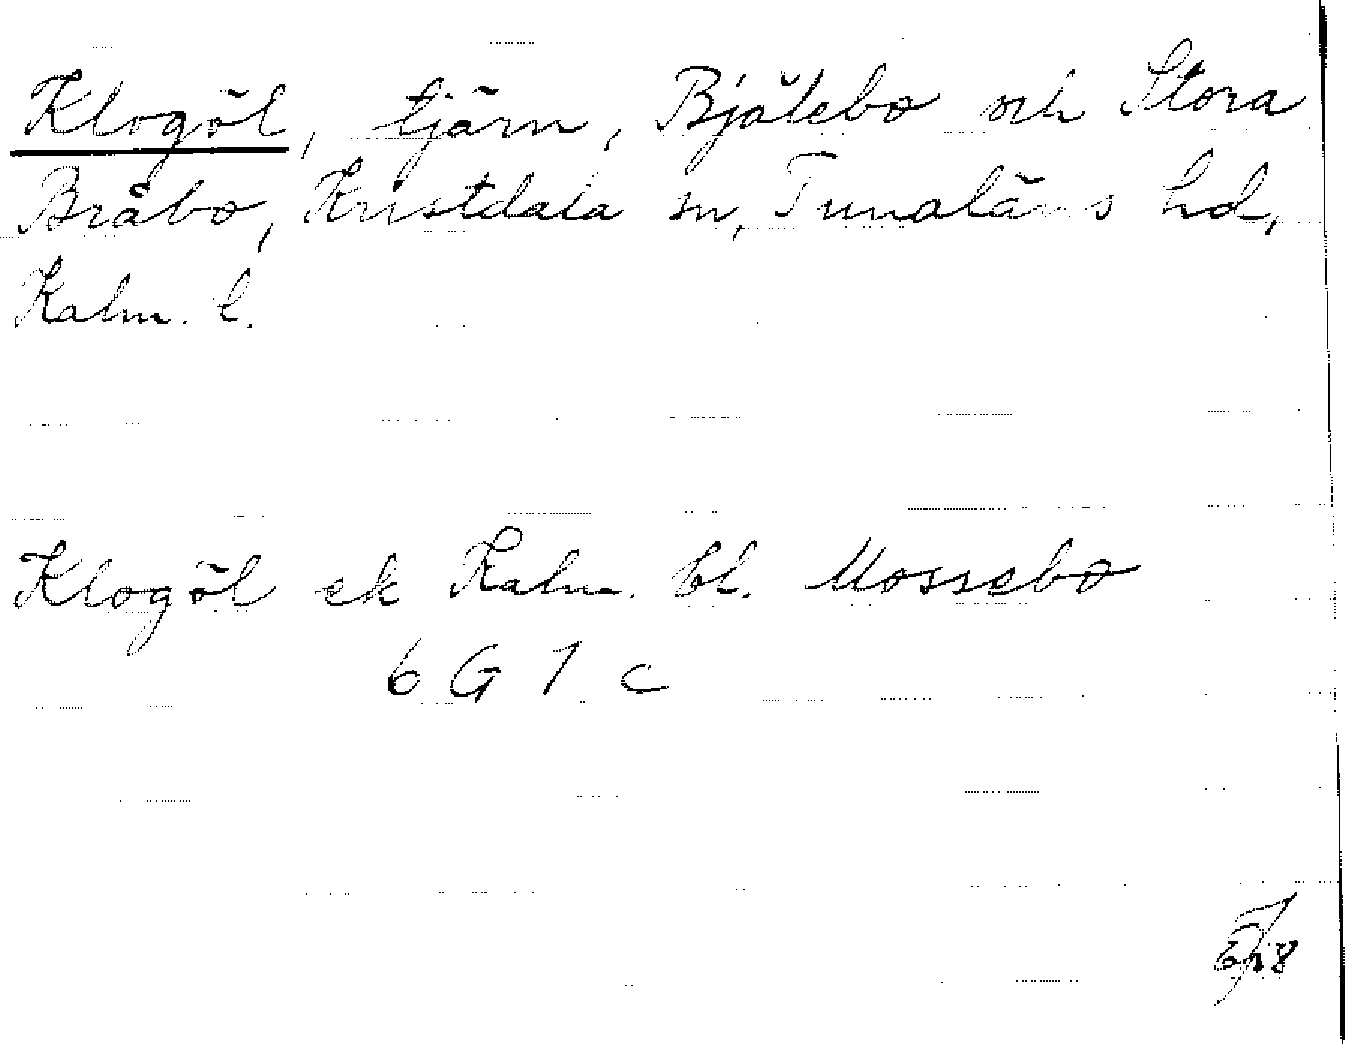 Klogöl, tjärn, Bjälebo och Stora
Bråbo, Kristdala sn, Tunaläns hd,
Kalm. l.
Klogöl ek Kalm. bl. Mossebo
6 G 1 c